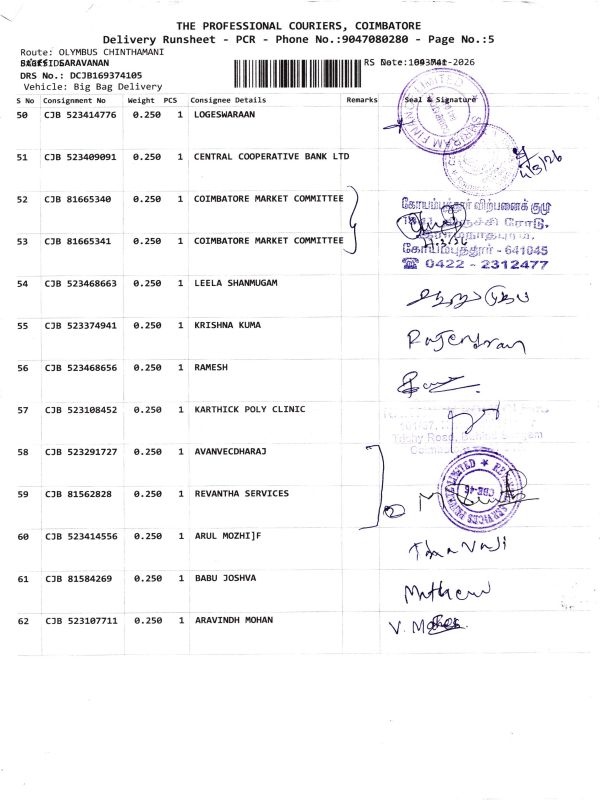 THE PROFESSIONAL COURIERS, COIMBATORE
Delivery Runsheet - PCR - Phone No.:9047080280 - Page No.:5
Route: OLYMBUS CHINTHAMANI
SARAVANAN
DRS No.: DCJB169374105
Vehicle: Big Bag Delivery
S No Consignment No Weight PCS Consignee Details Remarks Seal & Signature
50 CJB 523414776 0.250 1 LOGESWARAAN
51 CJB 523409091 0.250 1 CENTRAL COOPERATIVE BANK LTD
4/3/26
52 CJB 81665340 0.250 1 COIMBATORE MARKET COMMITTEE
53 CJB 81665341 0.250 1 COIMBATORE MARKET COMMITTEE
கோயம்புத்தூர் விற்பனைக் குழு
ரோடு,
கோயம்புத்தூர் - 641045
☎ 0422 - 2312477
54 CJB 523468663 0.250 1 LEELA SHANMUGAM
55 CJB 523374941 0.250 1 KRISHNA KUMA
Rajendran
56 CJB 523468656 0.250 1 RAMESH
57 CJB 523108452 0.250 1 KARTHICK POLY CLINIC
58 CJB 523291727 0.250 1 AVANVECDHARAJ
59 CJB 81562828 0.250 1 REVANTHA SERVICES
2
CBE-45
60 CJB 523414556 0.250 1 ARUL MOZHI]F
61 CJB 81584269 0.250 1 BABU JOSHVA
Mathew
62 CJB 523107711 0.250 1 ARAVINDH MOHAN
V. Mohan